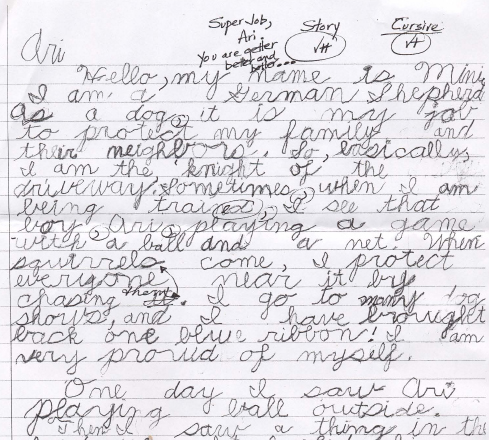 Super Job,
Ari.
You are getter
better and
better...
Story
√+
Cursive
√+
Ari
Hello, my name is Mini,
I am a German Shepherd
as a dog, it is my job
to protect my family and
their neighbors. So, basically,
I am the knight of the
driveway. Sometimes, when I am
being trained, I see that
boy, Ari, playing a game
with a ball and a net. When
squirrels come, I protect
everyone near it by
chasing them. I go to many dog
shows, and I have brought
back one blue ribbon! I am
very proud of myself.
One day I saw Ari
playing ball outside.
Then I saw a thing in the